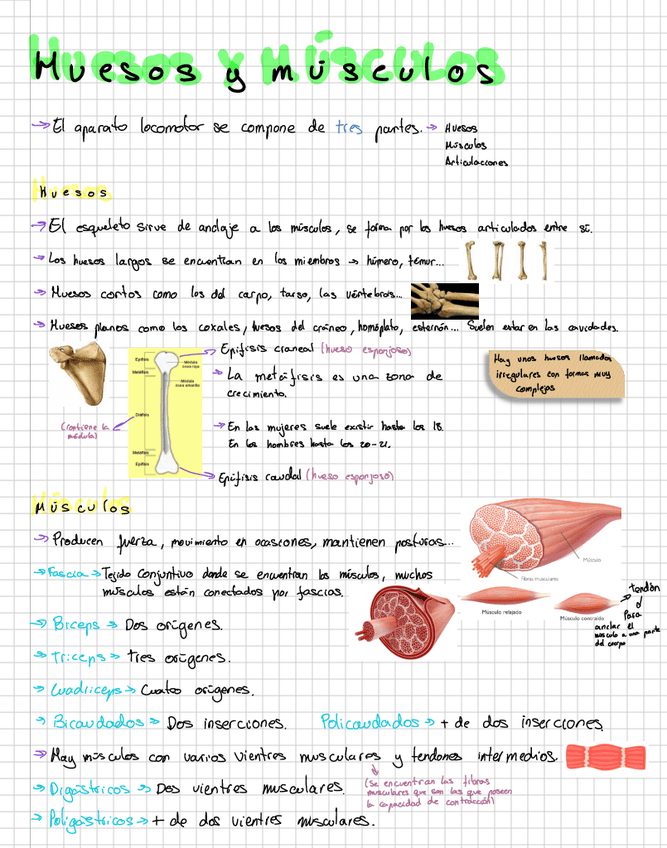 Huesos y músculos
→ El aparato locomotor se compone de tres partes. → Huesos
Músculos
Articulaciones
Huesos
→ El esqueleto sirve de anclaje a los músculos, se forma por los huesos articulados entre sí.
→ Los huesos largos se encuentran en los miembros → húmero, femur...
→ Huesos cortos como los del carpo, tarso, las vértebras...
→ Huesos planos como los coxales, huesos del cráneo, homóplato, esternón... Suelen estar en las cavidades.
Hay unos huesos llamados
irregulares con formas muy
complejas
Epífisis craneal (hueso esponjoso)
→ La metáfisis es una zona de
crecimiento.
→ En las mujeres suele existir hasta los 18.
En los hombres hasta los 20-21.
Epífisis caudal (hueso esponjoso)
(contiene la
médula)
Epífisis
Metáfisis
Diáfisis
Metáfisis
Epífisis
Médula
ósea roja
Médula
ósea amarilla
Músculos
→ Producen fuerza, movimiento en ocasiones, mantienen posturas...
→ Fascia → Tejido conjuntivo donde se encuentran los músculos, muchos
músculos están conectados por fascias.
Músculo
fibras musculares
Músculo relajado
Músculo contraído
→ tendón
Para
anclar el
músculo a una parte
del cuerpo
→ Bíceps → Dos orígenes.
→ Tríceps → tres orígenes.
→ Cuadríceps → Cuatro orígenes.
→ Bicaudados → Dos inserciones. Policaudados → + de dos inserciones.
→ Hay músculos con varios vientres musculares y tendones intermedios.
(Se encuentran las fibras
musculares que son las que poseen
la capacidad de contracción)
→ Digástricos → Dos vientres musculares.
→ Poligástricos → + de dos vientres musculares.